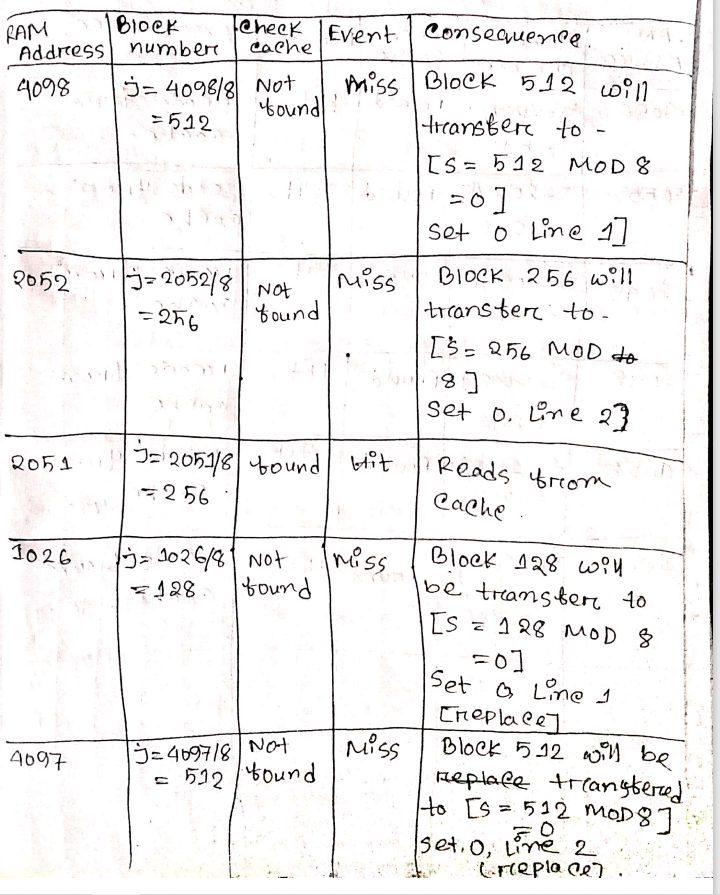 RAM Address | Block number | Check cache | Event | Consequence
4098 | j= 4098/8 =512 | Not found | Miss | Block 512 will
transfer to -
[S = 512 MOD 8
=0]
Set 0 Line 1]
2052 | j= 2052/8 =256 | Not found | Miss | Block 256 will
transfer to -
[S = 256 MOD to
8]
Set 0, Line 2]
2051 | j= 2051/8 =256 | found | Hit | Reads from
cache.
1026 | j= 1026/8 =128 | Not found | Miss | Block 128 will
be transfer to
[S = 128 MOD 8
=0]
Set 0, Line 1
[replace]
4097 | j=4097/8 = 512 | Not found | Miss | Block 512 will be
replace transfered
to [S = 512 MOD 8]
= 0
Set, 0, Line 2
[replace].